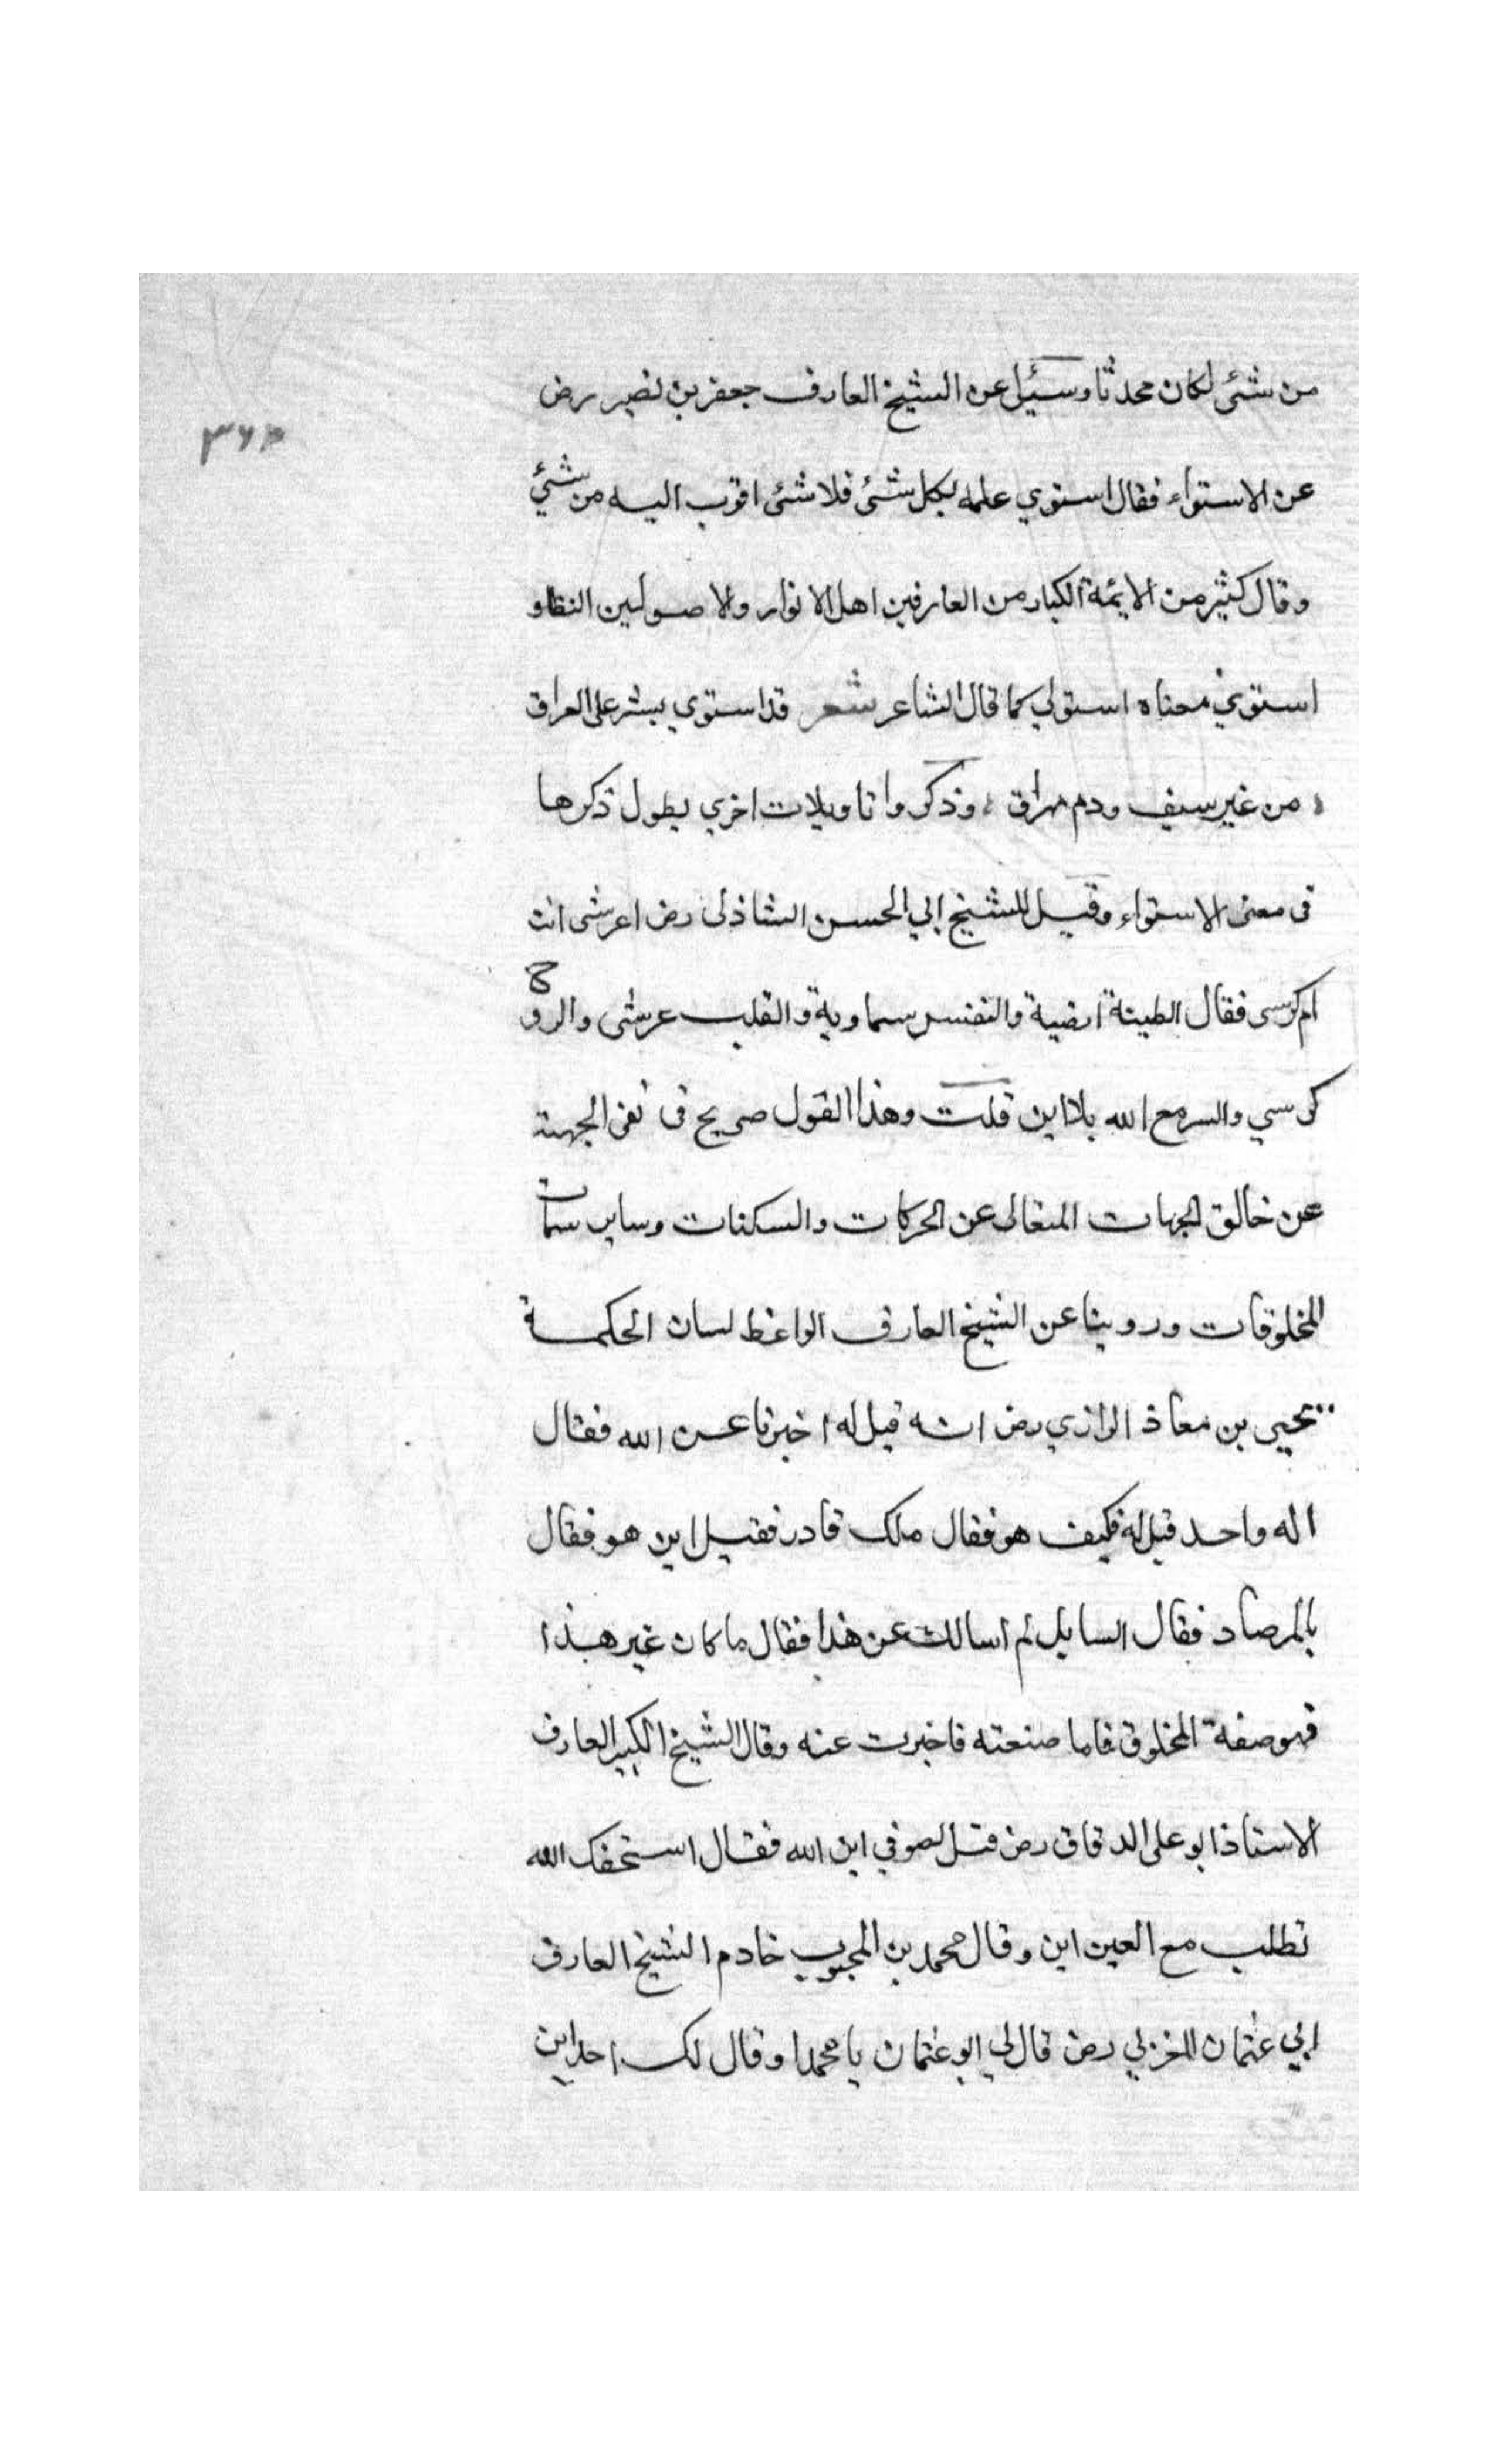 من شئ لكان محدثا وسئيل عن الشيخ العارف جعفر بن نصير رض
عن الاستواء فقال استوي علمه بكل شئ فلا شئ اقرب اليه من شئي
وقال كثير من الايئمة الكبار من العارفين اهل الانوار ولا صوليين النظاو
استوي معناه استولي كما قال الشاعر شعر قد استوي بشر على العراق
من غير سيف ودم مهراق وذكروا تاويلات اخري يطول ذكرها
فى معنى الاستواء وقيل للشيخ ابي الحسن الشاذلى رض اعرشى انت
ام كرسى فقال الطينة ارضية والنفس سماوية والقلب عرشى والروح
كرسي والسر مع الله بلا اين قلت وهذا القول صريح فى نفى الجهة
عن خالق الجهات المتعالى عن الحركات والسكنات وساير سمات
المخلوقات وروينا عن الشيخ العارف الواعظ لسان الحكمة
يحيى بن معاذ الرازي رض انه قيل له اخبرنا عن الله فقال
اله واحد قيل له فكيف هو فقال ملك قادر فقيل اين هو فقال
بالمرصاد فقال السايل لم اسالك عن هذا فقال ما كان غير هذا
فهو صفة المخلوق فاما صنعته فاخبرت عنه وقال الشيخ الكبير العارف
الاستاذ ابو على الدقاق رض قيل لصوفي اين الله فقال استحفك الله
تطلب مع العين اين وقال محمد بن المحبوب خادم الشيخ العارف
ابي عثمان المغربي رض قال لي ابو عثمان يا محمد او قال لك احد اين
٣٦٢